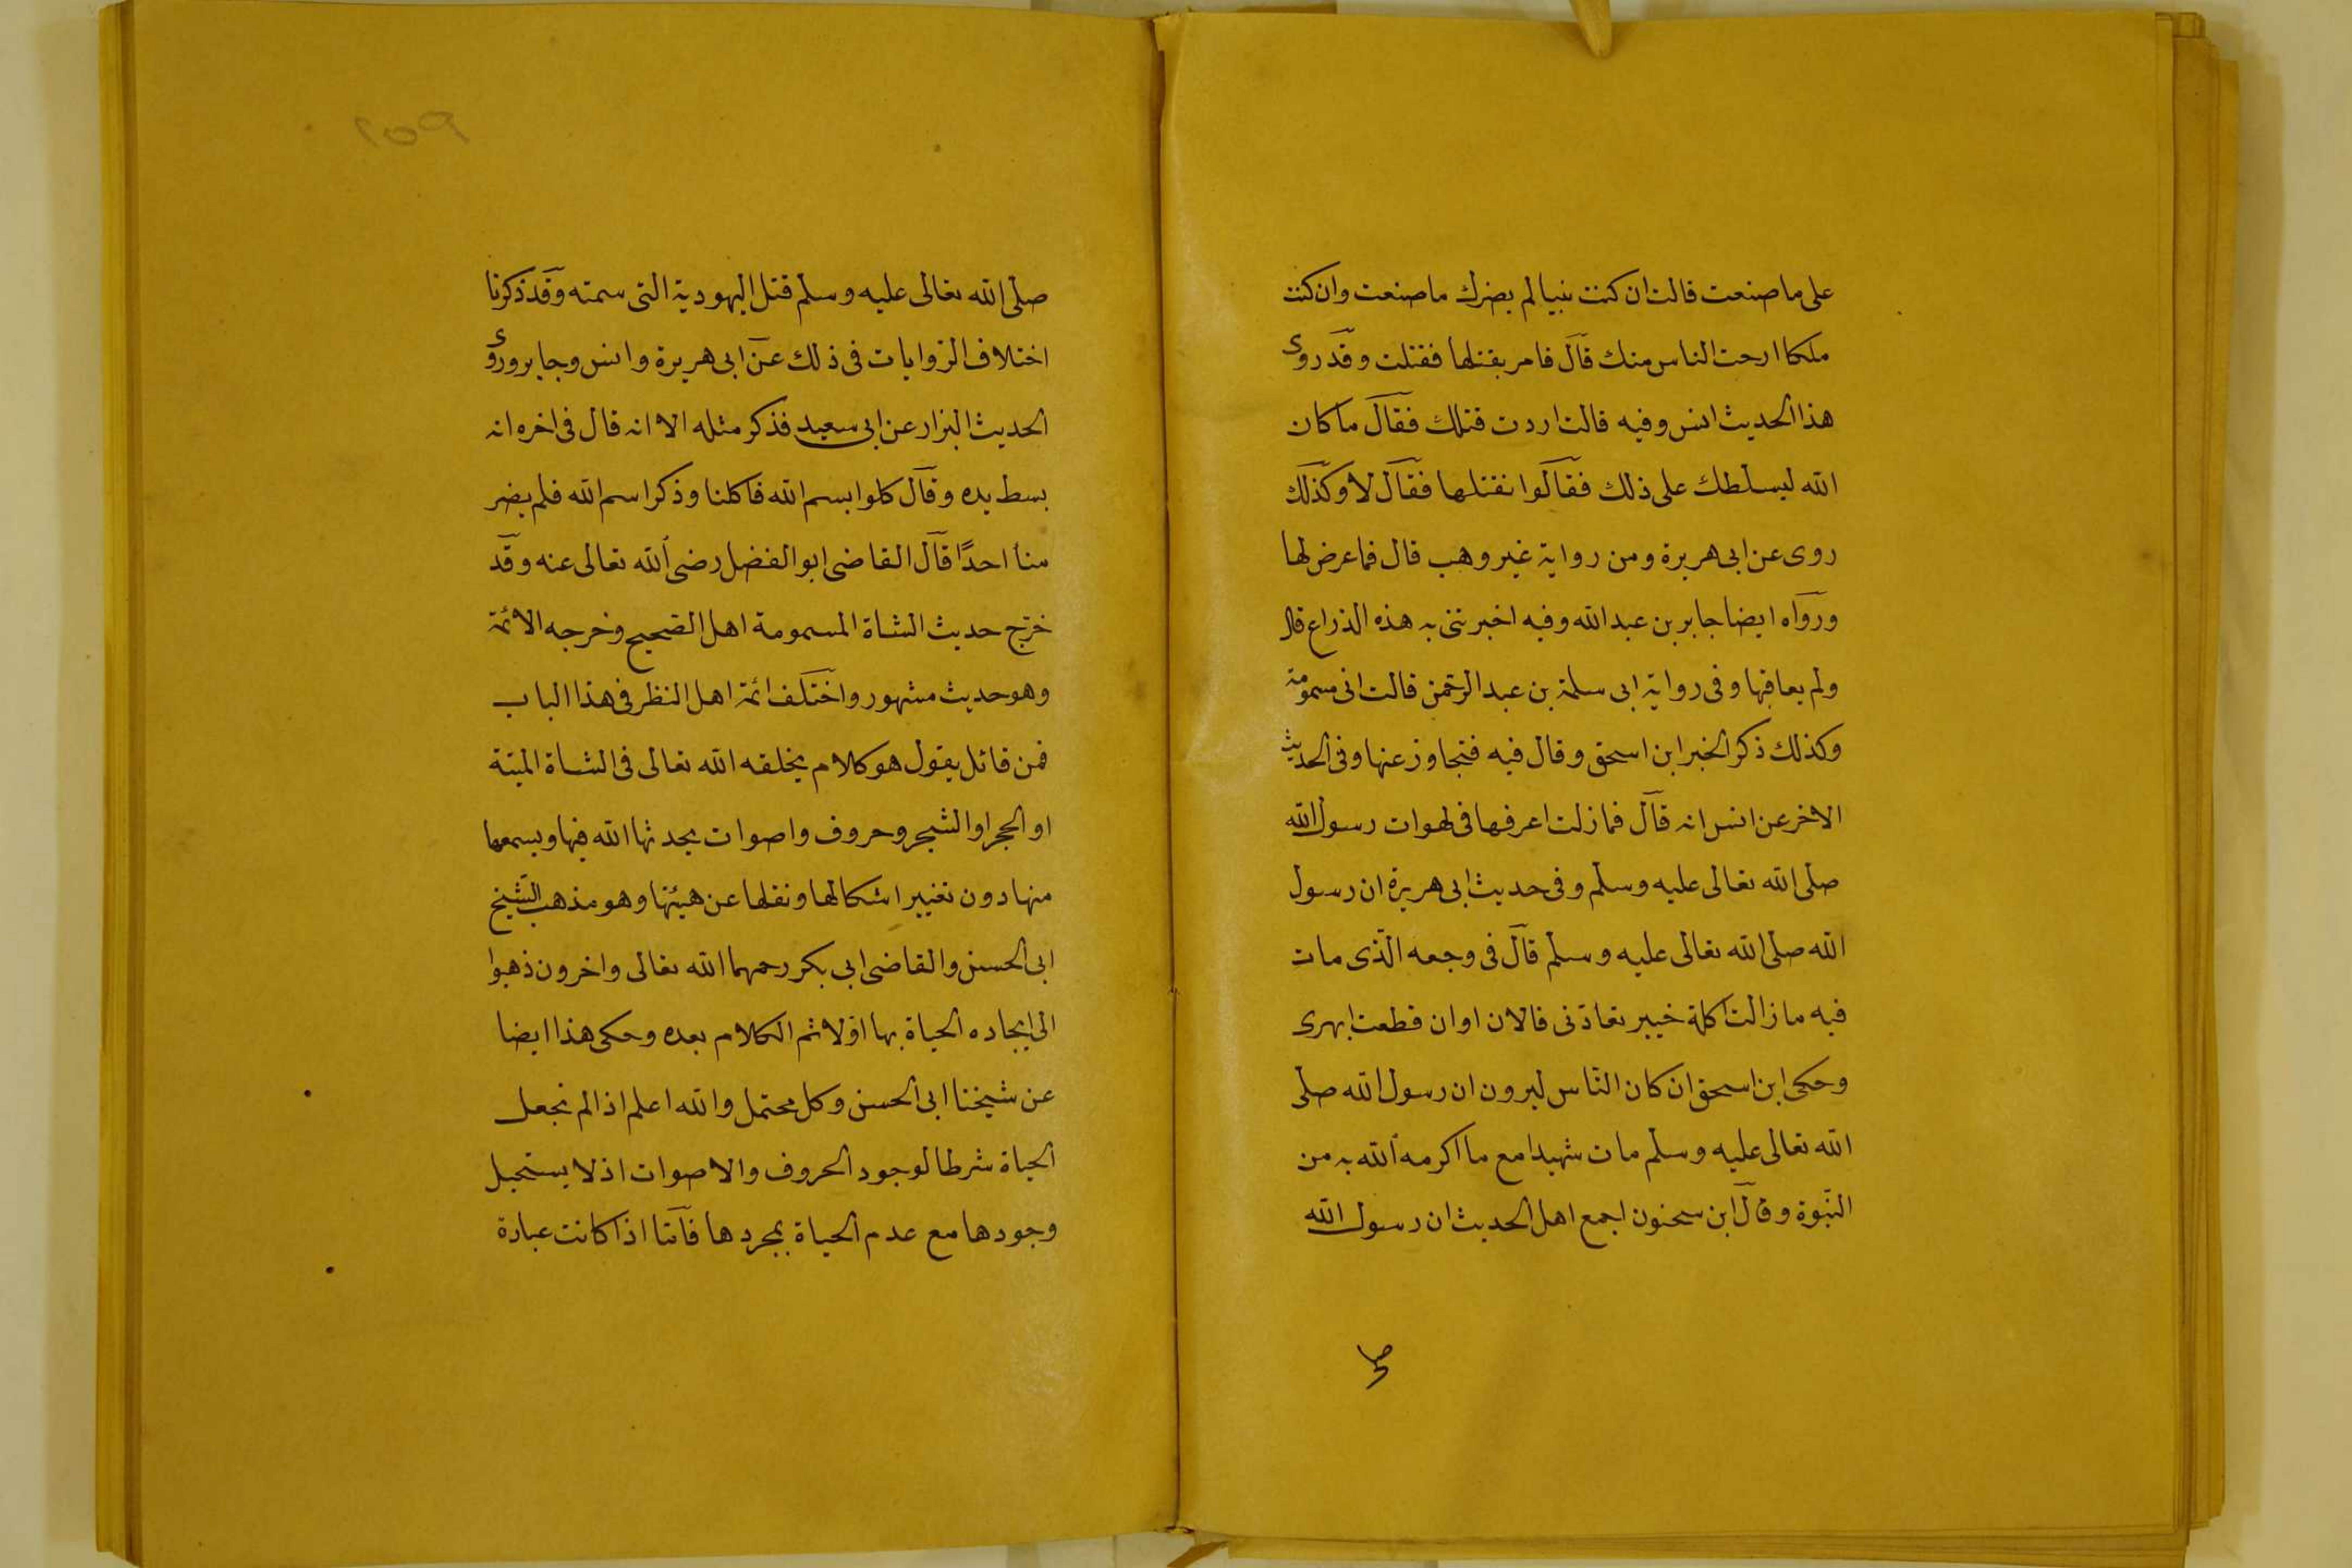 على ما صنعت قالت ان كنت نبيا لم يضرك ما صنعت وان كنت
ملكا ارحت الناس منك قال فامر بقتلها فقتلت وقد روى
هذا الحديث انس وفيه قالت اردت قتلك فقال ما كان
الله ليسلطك على ذلك فقالوا نقتلها فقال لا وكذلك
روى عن ابى هريرة ومن رواية غير وهب قال فما عرض لها
ورواه ايضا جابر بن عبد الله وفيه اخبرتنى به هذه الذراع قال
ولم يعاقبها وفى رواية ابى سلمة بن عبد الرحمن قالت انى مسمومة
وكذلك ذكر الخبر ابن اسحق وقال فيه فتجاوز عنها وفى الحديث
الاخر عن انس انه قال فما زلت اعرفها فى لهوات رسول الله
صلى الله تعالى عليه وسلم وفى حديث ابى هريرة ان رسول
الله صلى الله تعالى عليه وسلم قال فى وجعه الذى مات
فيه ما زالت اكلة خيبر تعادنى فالان اوان قطعت ابهرى
وحكى ابن اسحق ان كان الناس ليرون ان رسول الله صلى
الله تعالى عليه وسلم مات شهيدا مع ما اكرمه الله به من
النبوة وقال ابن سحنون اجمع اهل الحديث ان رسول الله
صلى الله تعالى عليه وسلم قتل اليهودية التى سمته وقد ذكرنا
اختلاف الروايات فى ذلك عن ابى هريرة وانس وجابر وروى
الحديث البزار عن ابى سعيد فذكر مثله الا انه قال فى اخره انه
بسط يده وقال كلوا بسم الله فاكلنا وذكر اسم الله فلم يضر
منا احدًا قال القاضى ابو الفضل رضى الله تعالى عنه وقد
خرّج حديث الشاة المسمومة اهل الصحيح وخرجه الائمة
وهو حديث مشهور واختلف ائمة اهل النظر فى هذا الباب
فمن قائل يقول هو كلام يخلقه الله تعالى فى الشاة الميتة
او الحجر او الشجر وحروف واصوات يحدثها الله فيها ويسمعها
منها دون تغيير اشكالها ونقلها عن هيئتها وهو مذهب الشيخ
ابى الحسن والقاضى ابى بكر رحمهما الله تعالى واخرون ذهبوا
الى ايجاده الحياة بها اولا ثم الكلام بعده وحكى هذا ايضا
عن شيخنا ابى الحسن وكل محتمل والله اعلم اذا لم نجعل
الحياة شرطا لوجود الحروف والاصوات اذ لا يستحيل
وجودها مع عدم الحياة بمجردها فاما اذا كانت عبارة